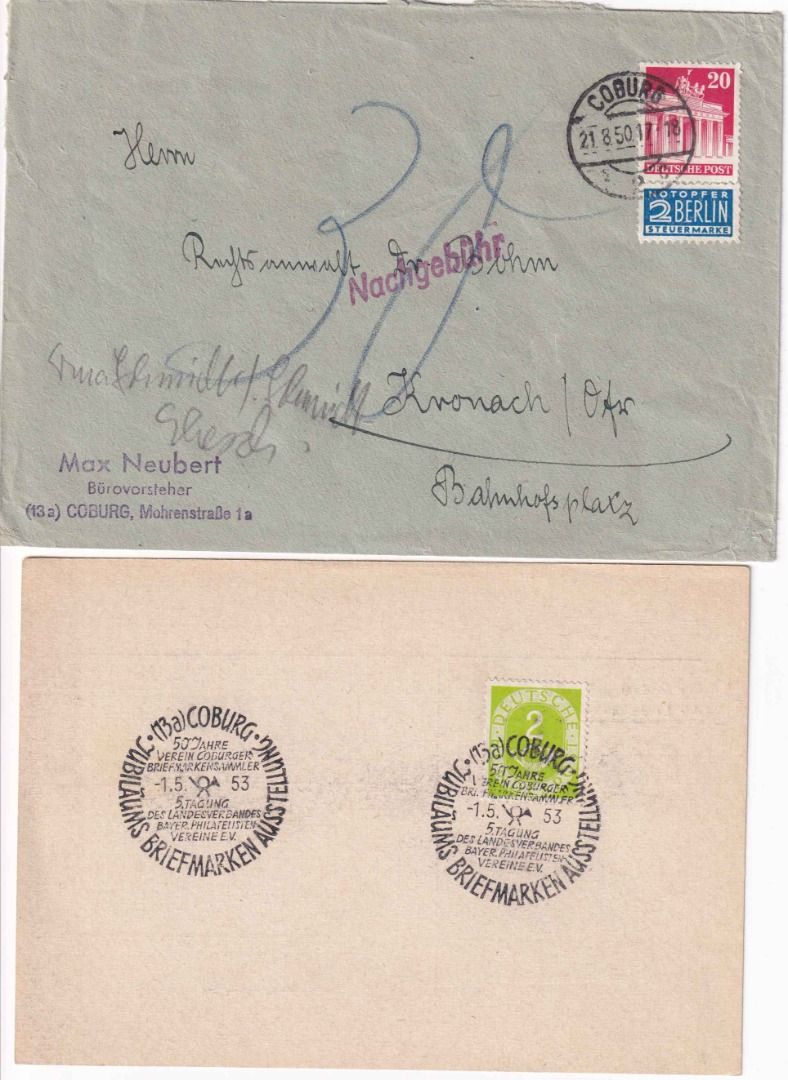 COBURG
21.8.50.17-18
20
DEUTSCHE POST
NOTOPFER
2 BERLIN
STEUERMARKE
Herrn
Rechtsanwalt Dr. Böhm
Nachgebühr
Kronach / Ofr
Bahnhofsplatz
Max Neubert
Bürovorsteher
(13a) COBURG, Mohrenstraße 1a
(13a) COBURG
50 JAHRE
VEREIN COBURGER
BRIEFMARKENSAMMLER
-1.5. 53
5. TAGUNG
DES LANDESVERBANDES
BAYER. PHILATELISTEN-
VEREINE E.V.
JUBILÄUMS BRIEFMARKEN AUSSTELLUNG
DEUTSCHE
2
(13a) COBURG
50 JAHRE
VEREIN COBURGER
BRIEFMARKENSAMMLER
-1.5. 53
5. TAGUNG
DES LANDESVERBANDES
BAYER. PHILATELISTEN-
VEREINE E.V.
JUBILÄUMS BRIEFMARKEN AUSSTELLUNG